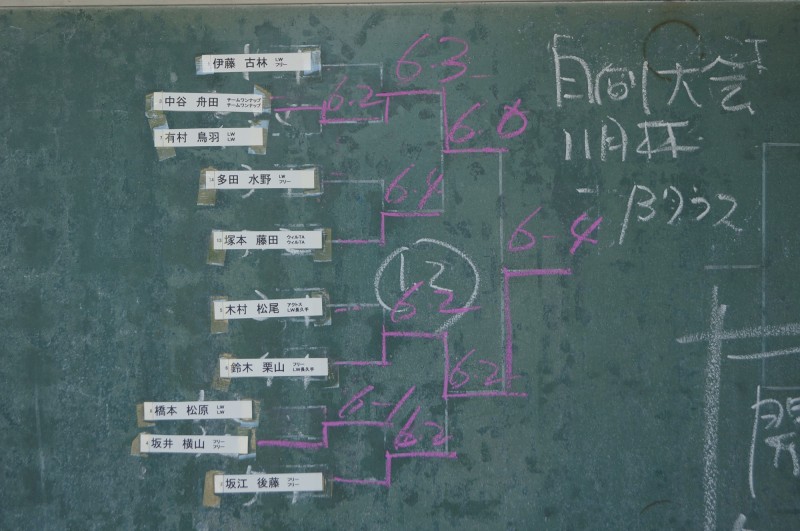 伊藤 古林 LW フリー
中谷 舟田 チームワンナップ チームワンナップ
有村 鳥羽 LW LW
多田 水野 LW フリー
塚本 藤田 ウィルTA ウィルTA
木村 松尾 アクトス LW長久手
鈴木 栗山 フリー LW長久手
橋本 松原 LW LW
坂井 横山 フリー フリー
坂江 後藤 フリー フリー
6-2
6-3
6-4
6-0
12
62
6-1
62
62
6-4
大会
11月杯
Bクラス
開